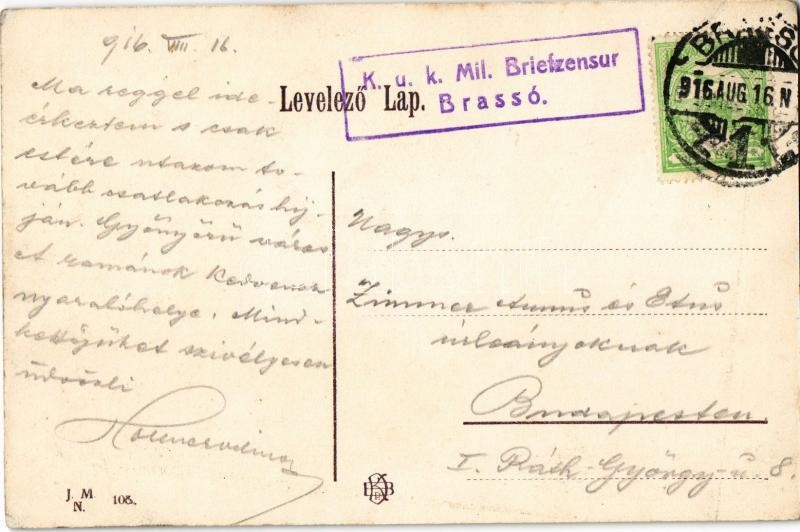 916. VIII. 16.
Ma reggel ide-
érkeztem s csak
estére utazom to-
vább csatlakozás hí-
ján. Gyönyörű város
et románok kedvencz
nyaralóhelye. Mind-
kettőjüket szivélyesen
üdvözli
K. u. k. Mil. Briefzensur
Brassó.
Levelező Lap.
BRASSÓ
916 AUG. 16. N
1
Nagys.
Zimmer Annus és Etus
úrleányoknak
Budapesten.
I. Ráth-György-u. 8.
J. M.
N. 103.